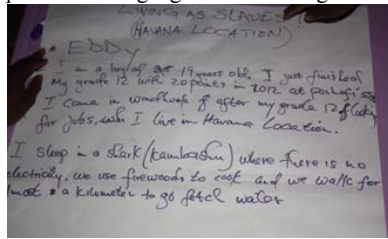 LIVING AS SLAVES
(HAVANA LOCATION)
EDDY
I am a boy of 19 years old, I just finished
My grade 12 with 20 points in 2012 at
I came in after my grade 12
for jobs, I live in Havana Location.
I sleep in a shark (kambashu) where there is no
electricity, we use firewoods to cook and we walk for
most a kilometer to go fetch water